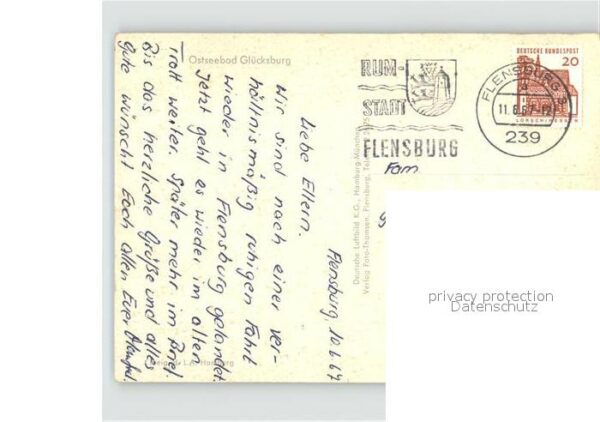 Ostseebad Glücksburg
Flensburg, 10.6.67
Liebe Eltern.
Wir sind nach einer ver-
hältnismäßig ruhigen Fahrt
wieder in Flensburg gelandet.
Jetzt geht es wieder im alten
Trott weiter. Später mehr im Brief.
Bis das herzliche Grüße und alles
Gute wünscht Euch allen Euer
Deutsche Luftbild K.G., Hamburg-München
Verlag Foto-Thomsen, Flensburg, Tel.
RUM-
STADT
FLENSBURG
FLENSBURG
11.6.67
239
DEUTSCHE BUNDESPOST
20
LORSCH/HESSEN
Fam
privacy protection
Datenschutz